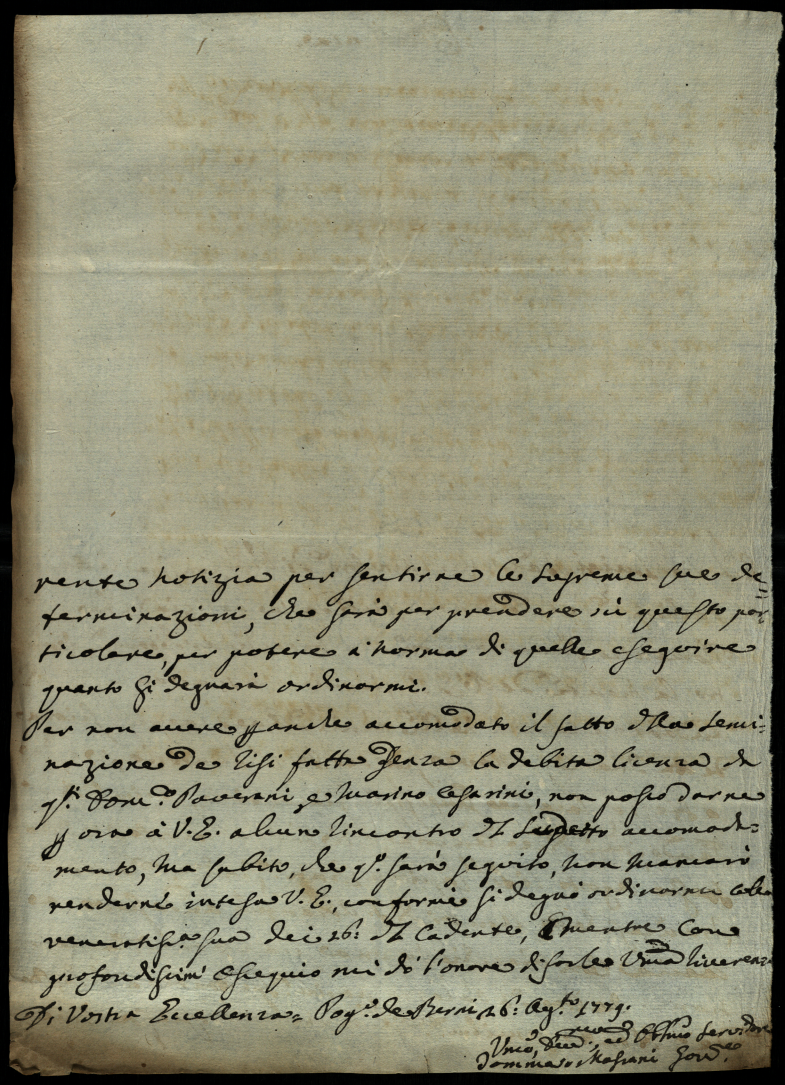 rente notizia per sentirne le supreme sue de=
terminazioni, che sarà per prendere sù questo par
ticolare, per potere à norma di quelle eseguire
quanto si degnarà ordinarmi.
Per non avere anche accomodato il fatto della semi=
nazione de risi fatta senza la debita licenza da
q.ti Dom.co Paverani, e Marino Cesarini, non posso darne
ora à V. E. alcun rincontro del sudetto accomoda=
mento, ma subito, che q.o sarà seguito, non mancarò
renderne intesa V. E., conforme si degnò ordinarmi colla
veneratiss.a sua dei 26: del Cadente, mentre con
profondissimo ossequio mi dò l'onore di farle um.a riverenza
Di Vostra Eccellenza= Pog.o de Berni 26: Ag.to 1779.
Um.o, ed Obb.mo Servidore
Tommaso Gov.re